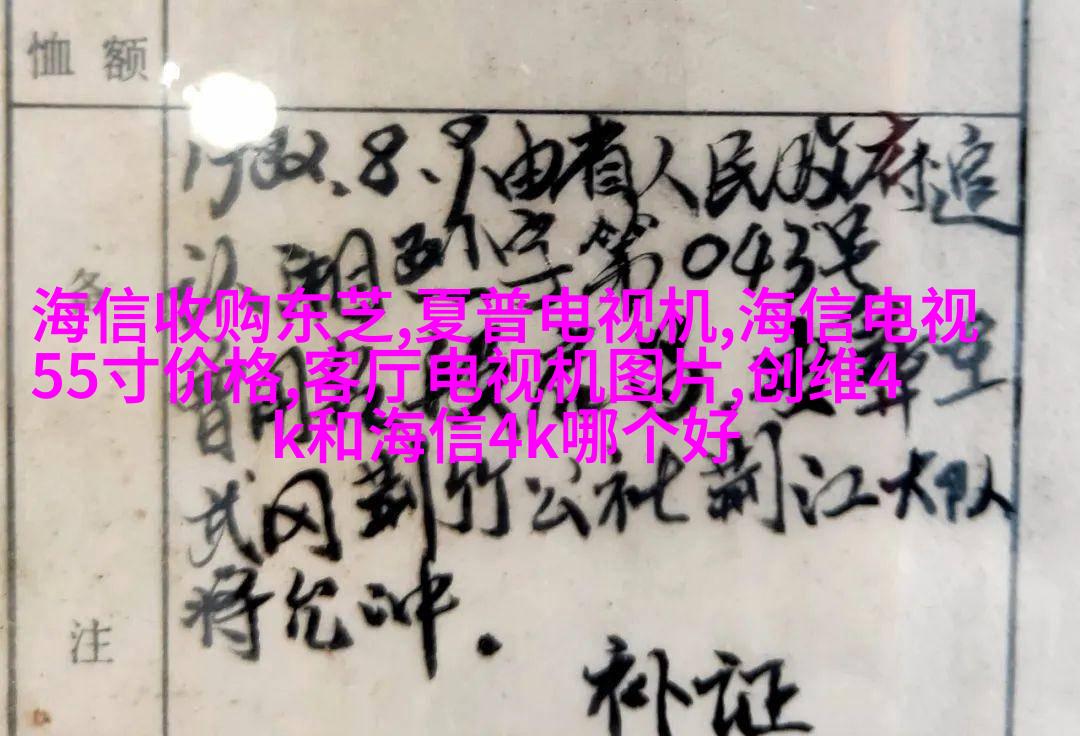 恤额
1982.8.9由省人民政府追
认 湘烈字第043号
备
海信收购东芝,夏普电视机,海信电视
55寸价格,客厅电视机图片,创维4
k和海信4k哪个好
武冈荆竹公社荆江大队
将允冲.
注
补证